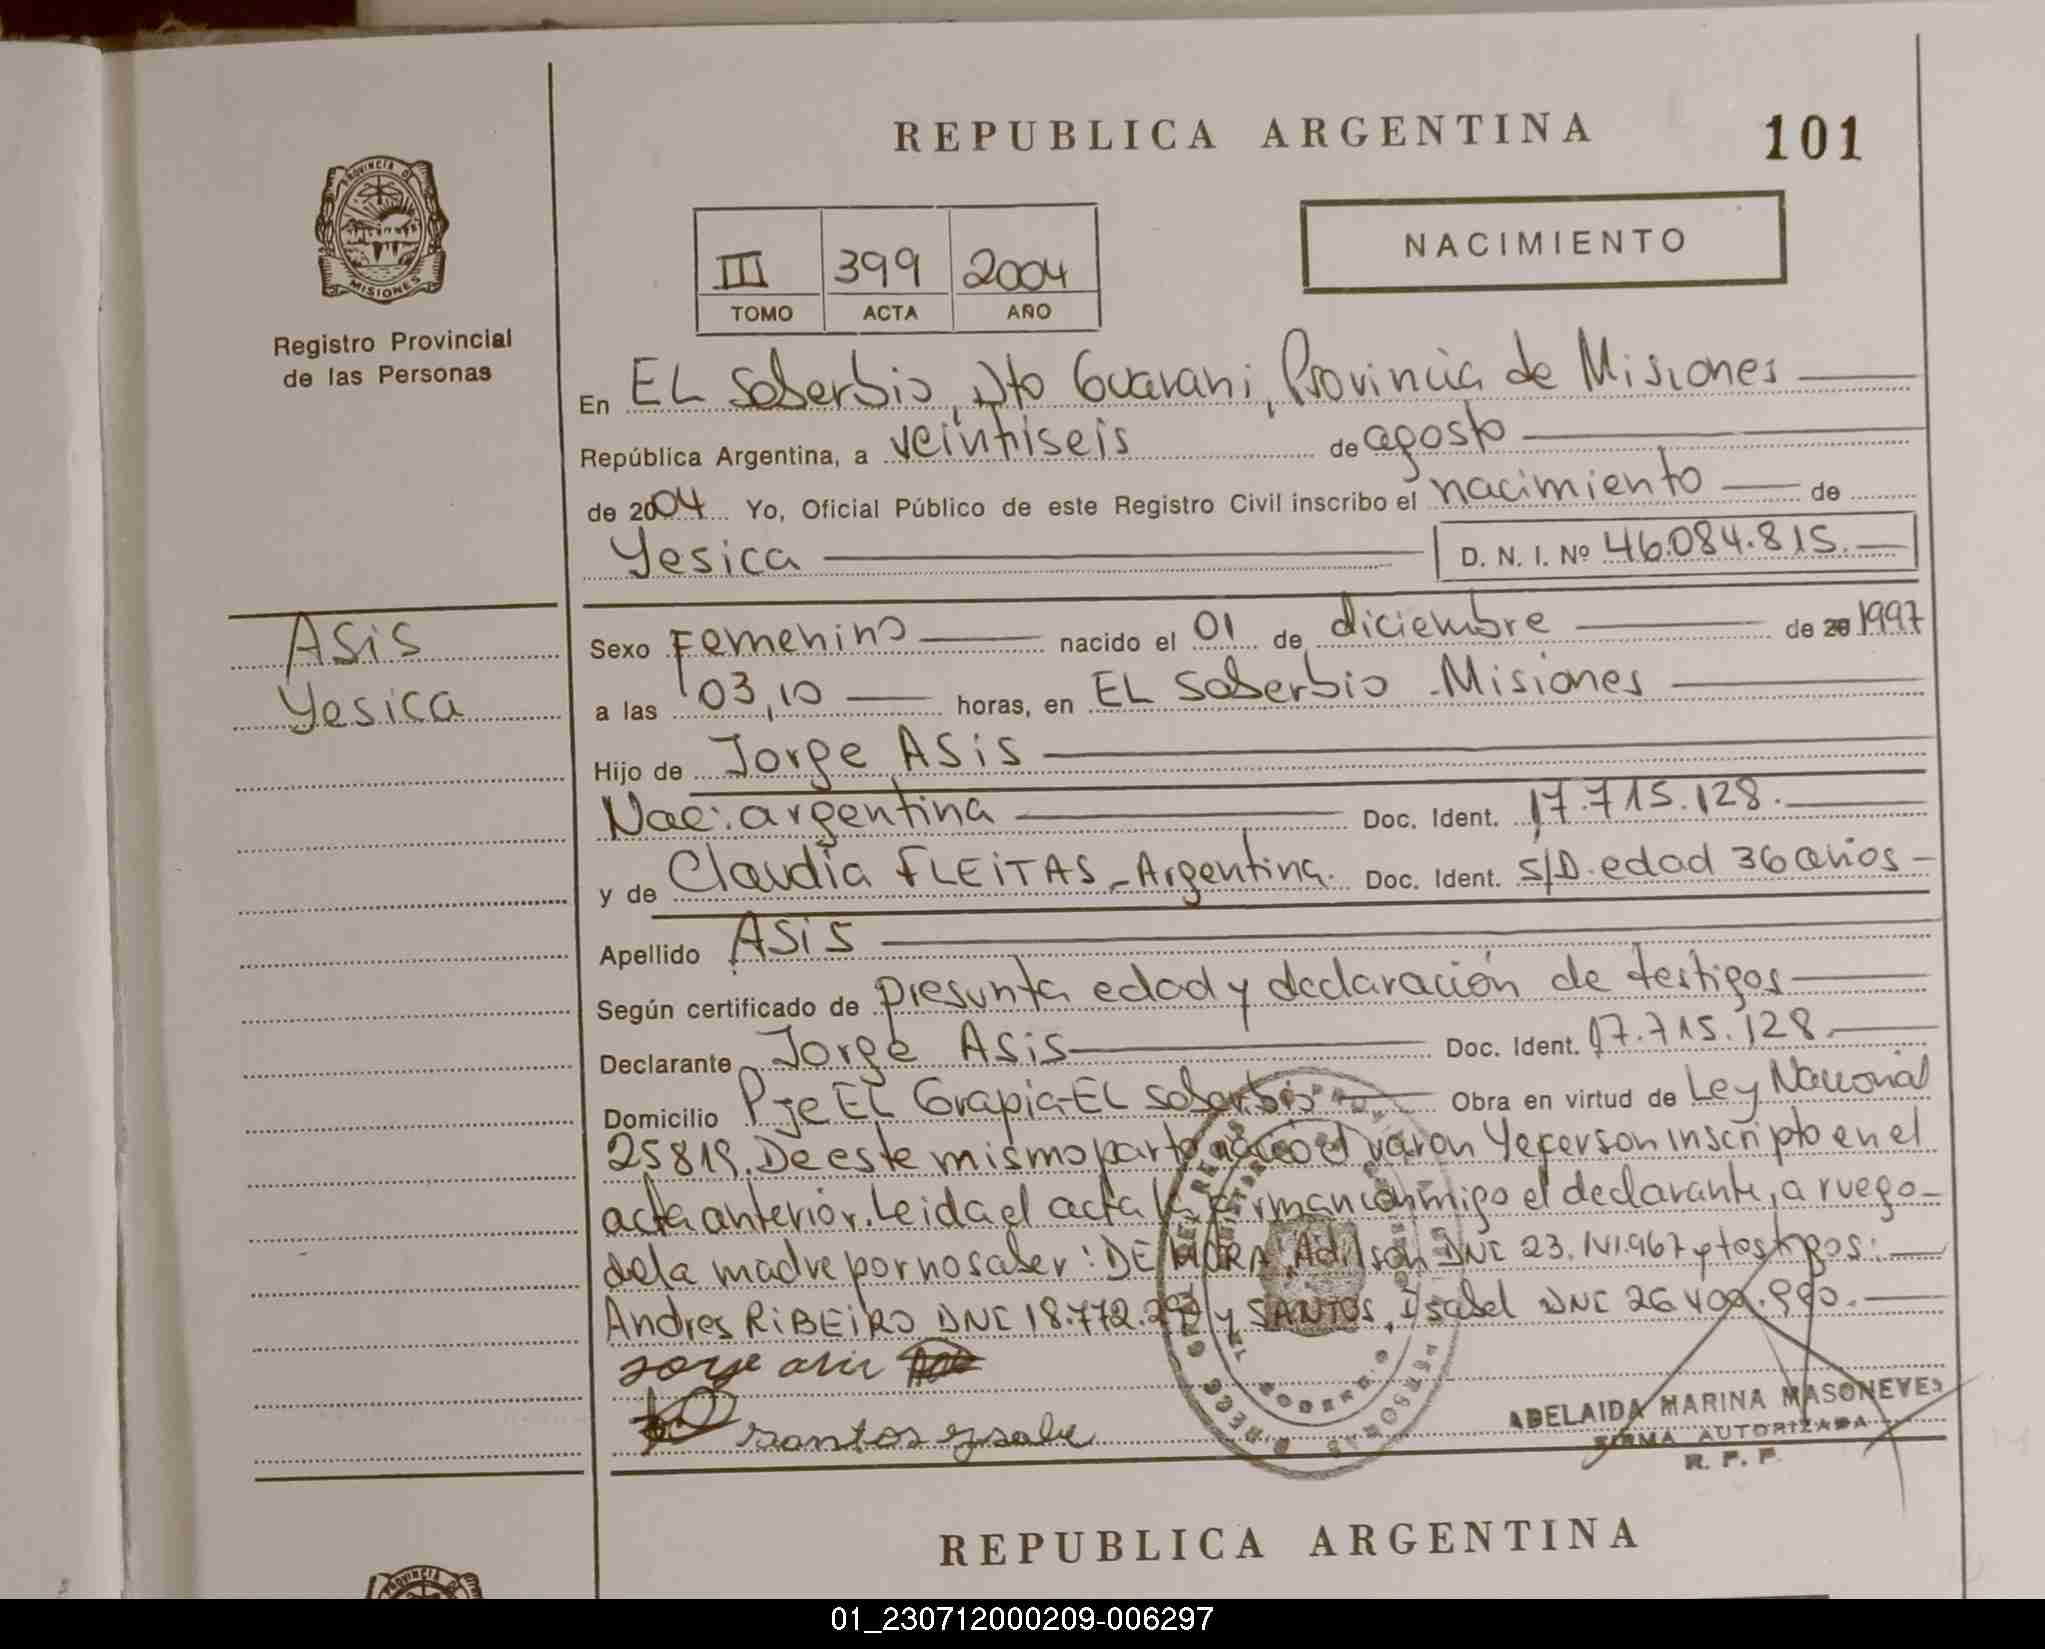 REPUBLICA ARGENTINA
101
PROVINCIA DE
MISIONES
Registro Provincial
de las Personas
III 399 2004
TOMO ACTA AÑO
NACIMIENTO
En EL Soberbio, Dto Guarani, Provincia de Misiones
República Argentina, a veintiseis de agosto
de 2004 Yo, Oficial Público de este Registro Civil inscribo el nacimiento de
Yesica D. N. I. Nº 46.084.815.
Asis
Yesica
Sexo Femenino nacido el 01 de diciembre de 20 1997
a las 03,10 horas, en EL Soberbio - Misiones
Hijo de Jorge ASis
Nac: argentina Doc. Ident. 17.715.128.
y de Claudia FLEITAS - Argentina. Doc. Ident. S/D. edad 36 años
Apellido ASis
Según certificado de presunta edad y declaración de testigos
Declarante Jorge Asis Doc. Ident. 17.715.128
Domicilio Pje EL Grapia - EL Soberbio Obra en virtud de Ley Nacional
25819. De este mismo parto nació el varon Yeferson inscripto en el
acta anterior. Leida el acta la firman conmigo el declarante, a ruego
de la madre por no saber: DE MORA, Adilson DNI 23. y testigos:
Andres RiBEiRO DNI 18.772. y SANTOS, Ysabel DNI
Jorge asis
santos ysabe
ADELAIDA MARINA MASONEVES
FIRMA AUTORIZADA
R. P. P.
REPUBLICA ARGENTINA
PROVINCIA DE
01_230712000209-006297